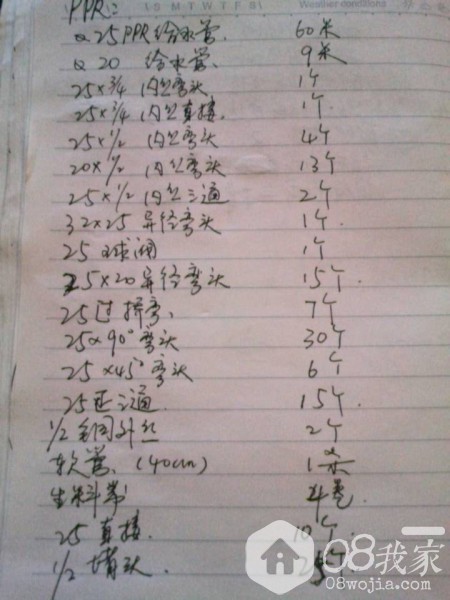 PPR:
S M T W T F S Weather conditions
Q25 PPR给水管. 60米
Q20 给水管. 9米
25×3/4 内丝弯头 1个
25×3/4 内丝直接. 1个.
25×1/2 内丝弯头 4个
20×1/2 内丝弯头 13个
25×1/2 内丝三通 2个
32×25 异径弯头 1个.
25 球阀 1个
25×20异径弯头 15个.
25过桥弯. 7个
25×90°弯头 30个
25×45°弯头 6个
25正三通. 15个.
1/2 全铜外丝 2个
软管.(40cm) 1
生料带 4卷.
25 直接. 10个.
1/2 堵头. 个.
08我家
08wojia.com